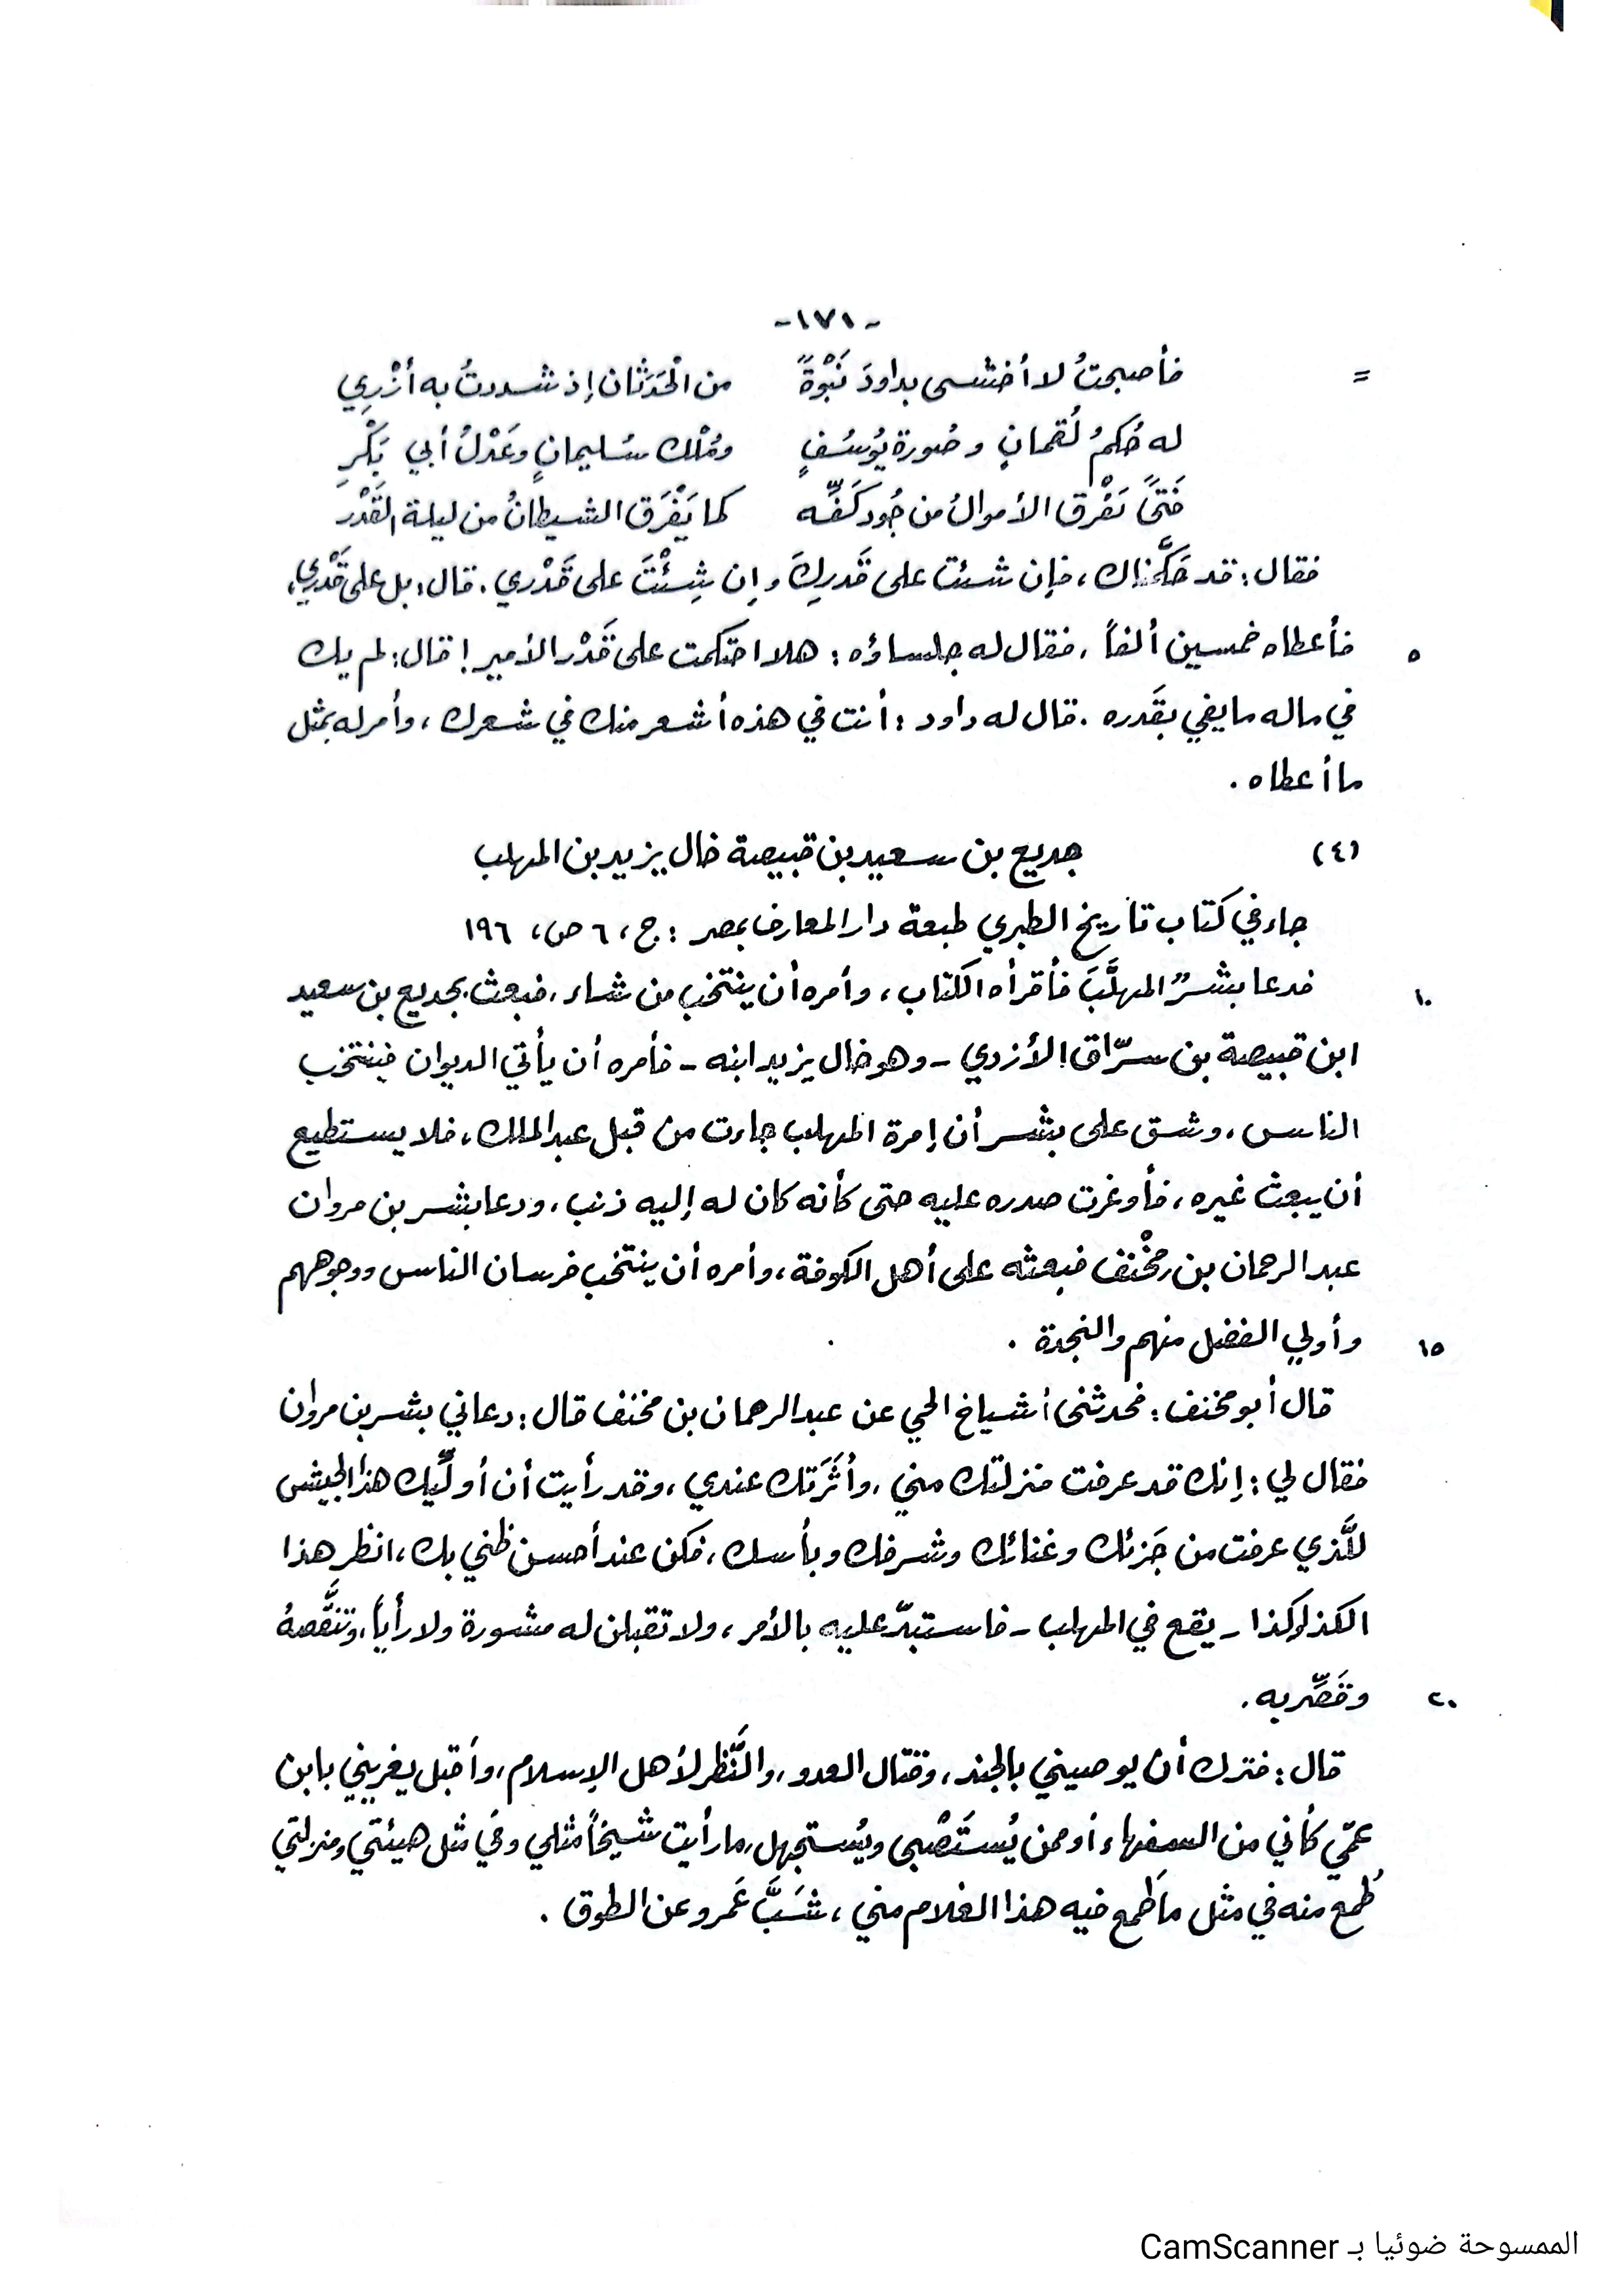 -١٧١-
= فأصبحتُ لا أخشى بداودَ نَبْوَةً من الْحَدَثان إذ شددتُ به أزْرِي
له حُكمُ لُقمانٍ وصُورة يُوسُفٍ ومُلك سُليمانٍ وعَدْلُ أبي بَكْرِ
فَتىً تَفْرق الأموالُ من جُود كَفِّه كما يَفْرَق الشيطانُ من ليلة القَدْر
فقال: قد حَكَّمناك، فإن شئت على قَدرِكَ وإن شِئْتَ على قَدْري. قال: بل على قَدْري،
٥ فأعطاه خمسين ألفاً، فقال له جلساؤه: هلا احتكمت على قَدْر الأمير! قال: لم يك
في ماله ما يفي بقَدره. قال له داود: أنت في هذه أشعر منك في شعرك، وأمر له بمثل
ما أعطاه.
(٤) جديع بن سعيد بن قبيصة خال يزيد بن المهلب
جاء في كتاب تأريخ الطبري طبعة دار المعارف بمصر: ج، ٦ ص، ١٩٦
١٠ فدعا بشرٌ المهلَّبَ فأقرأه الكتاب، وأمره أن ينتخب من شاء، فبعث بجديع بن سعيد
ابن قبيصة بن سرّاق الأزدي - وهو خال يزيد ابنه - فأمره أن يأتي الديوان فينتخب
الناس، وشق على بشر أن إمرة المهلب جاءت من قبل عبد الملك، فلا يستطيع
أن يبعث غيره، فأوغرت صدره عليه حتى كأنه كان له إليه ذنب، ودعا بشر بن مروان
عبد الرحمان بن مِخْنف فبعثه على أهل الكوفة، وأمره أن ينتخب فرسان الناس ووجوههم
١٥ وأولي الفضل منهم والنجدة.
قال أبو مخنف: فحدثني أشياخ الحي عن عبد الرحمان بن مخنف قال: دعاني بشر بن مروان
فقال لي: إنك قد عرفت منزلتك مني، وأَثَرَتك عندي، وقد رأيت أن أولِّيك هذا الجيش
للَّذي عرفت من جَزئك وغنائك وشرفك وبأسك، فكن عند أحسن ظني بك، انظر هذا
الكذا وكذا - يقع في المهلب - فاستبدّ عليه بالأمر، ولا تقبلن له مشورة ولا رأياً، وتنقَّصهُ
٢٠ وقَصِّر به.
قال: فترك أن يوصيني بالجند، وقتال العدو، والنَّظر لأهل الإسلام، وأقبل يغريني بابن
عمّي كأني من السفهاء أو ممن يُستَصْبى ويُستجهل، ما رأيت شيخاً مثلي وفي مثل هيئتي ومنزلتي
طُمع منه في مثل ما طَمع فيه هذا الغلام مني، شَبَّ عَمرو عن الطوق.
الممسوحة ضوئيا بـ CamScanner